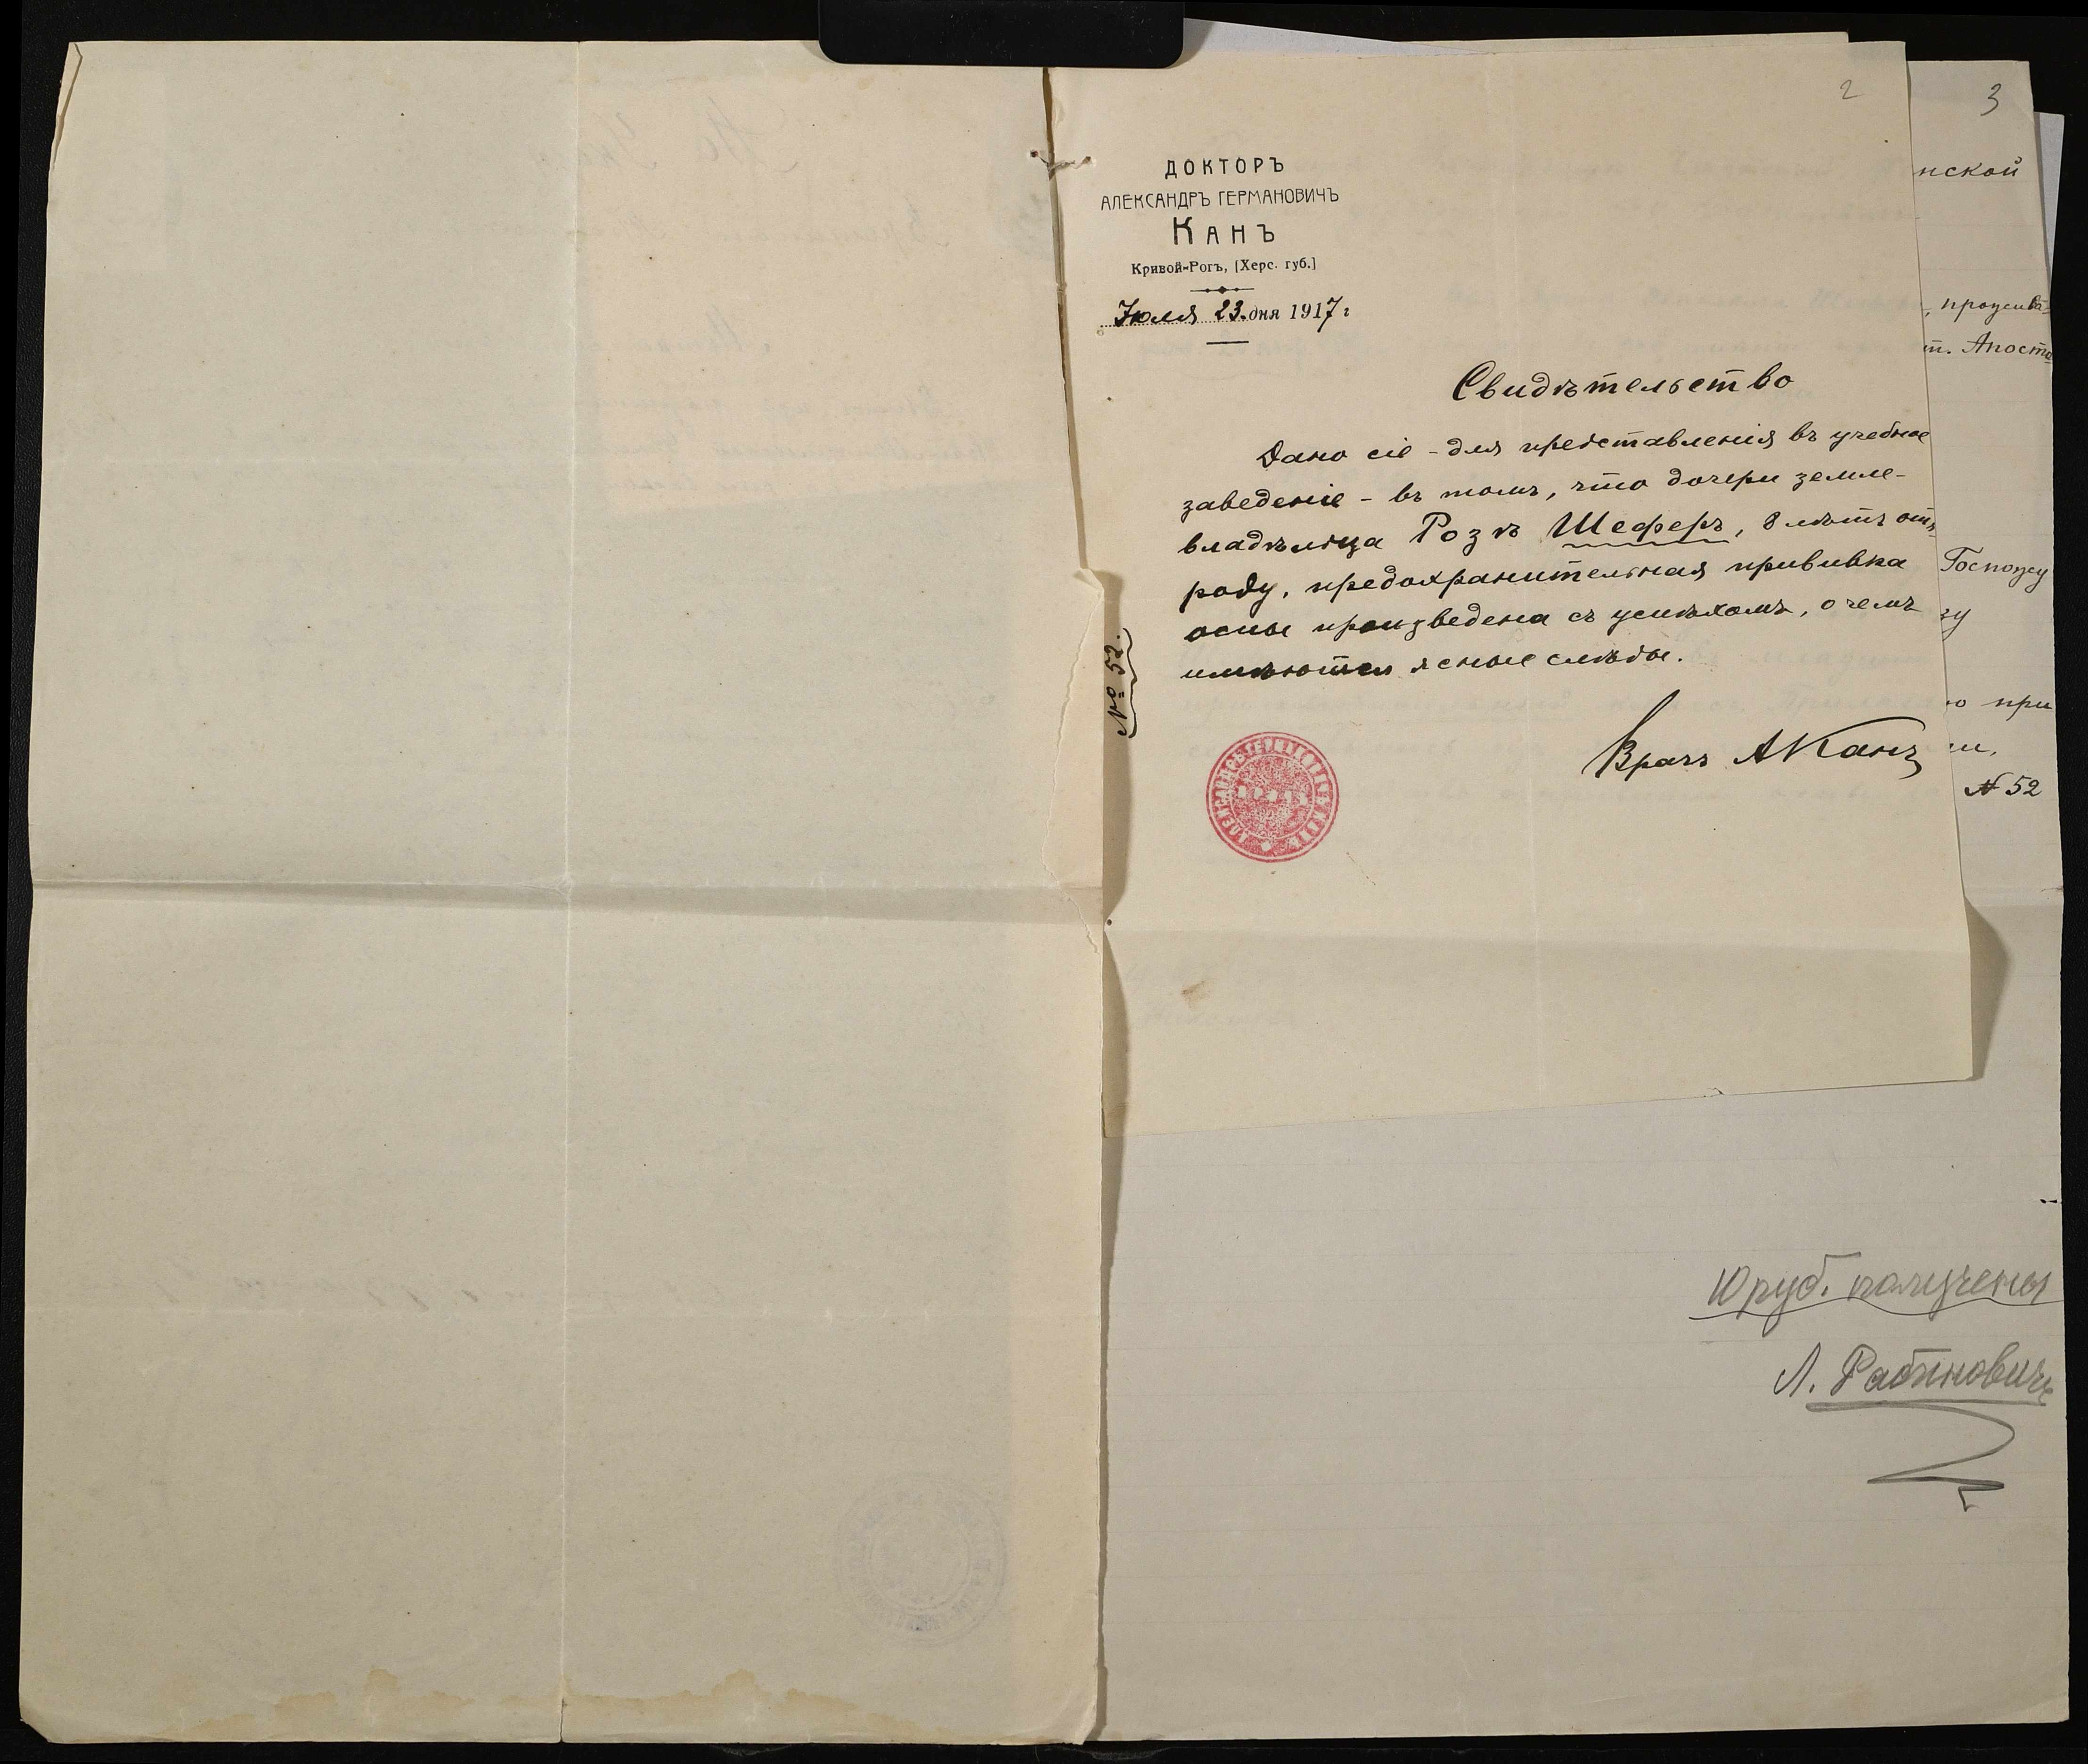 2
ДОКТОРЪ
АЛЕКСАНДРЪ ГЕРМАНОВИЧЪ
КАНЪ
Кривой-Рогъ, [Херс. губ.]
Іюля 23. дня 1917 г
Свидѣтельство
Дано сіе - для представленія въ учебное
заведеніе - въ томъ, что дочери земле-
владѣльца Розѣ Шеферъ, 8 лѣтъ отъ
роду, предохранительная прививка
оспы произведена съ успѣхомъ, о чемъ
имѣются ясные слѣды.
Врачъ АКанъ
№ 52.
3
нской
, прожива-
т. Апосто
Госпожу
зу
о при
ги.
№ 52
10 руб. получены
Л. Рабиновичъ